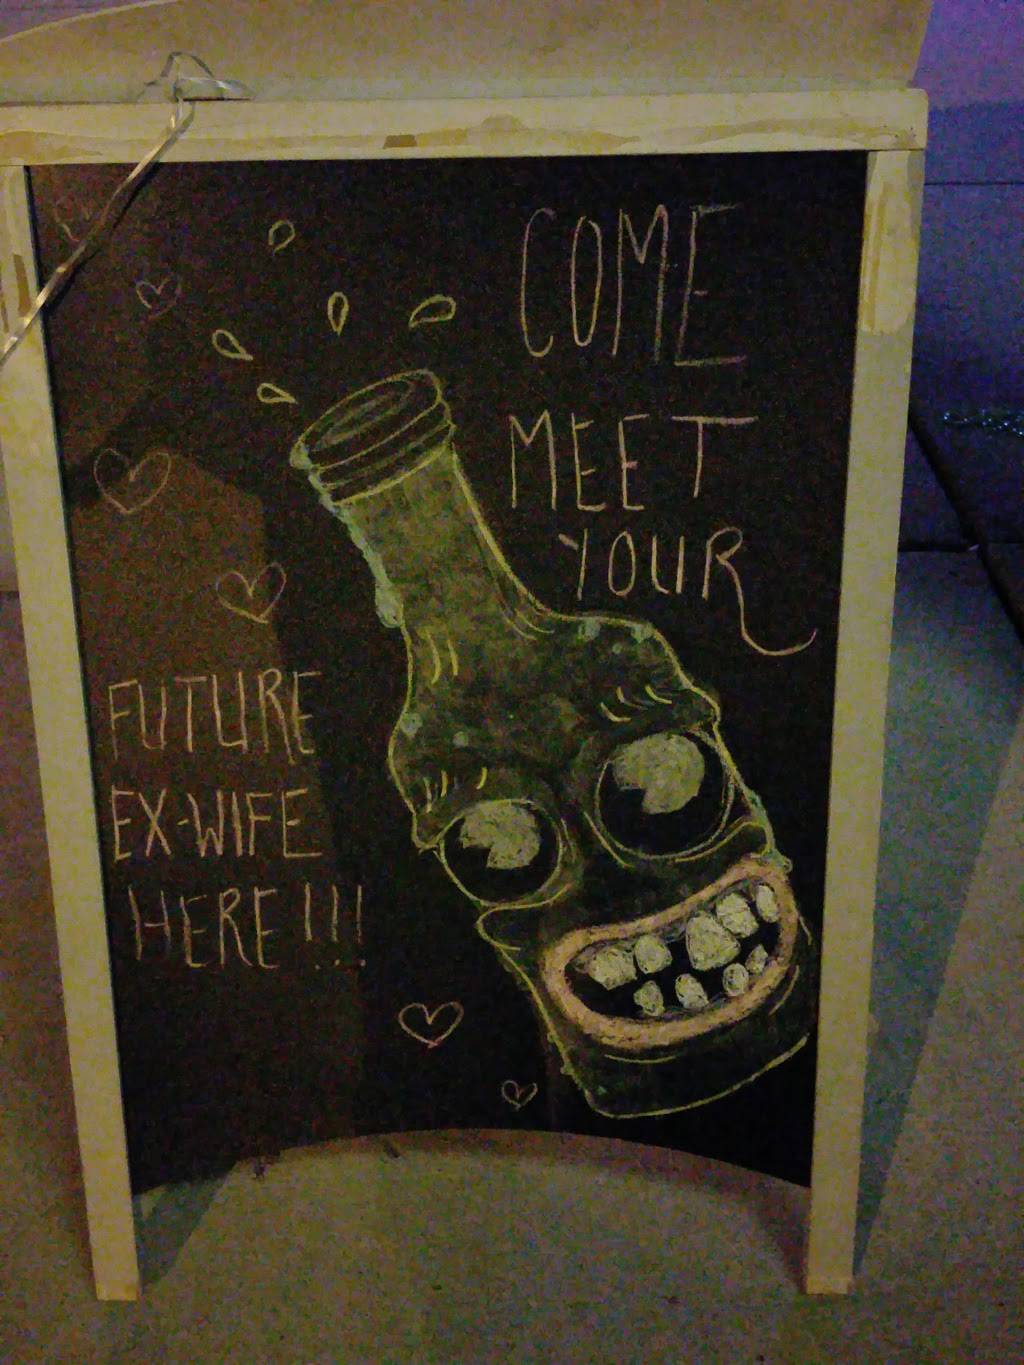 COME
MEET
YOUR
FUTURE
EX-WIFE
HERE!!!